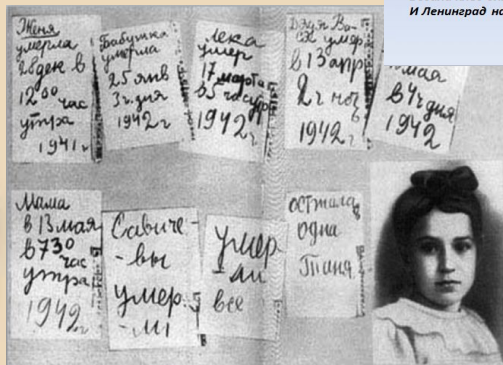 И Ленинград
Женя
умерла
28 дек в
12 00 час
утра
1941 г
Бабушка
умерла
25 янв
3 ч. дня
1942 г
Лека
умер
17 марта
в 5 час утр
1942 г
Дядя Ва-
ся умер
в 13 апр
2 ч ноч
1942 г
мая
в 4 ч дня
1942
Мама
в 13 мая
в 7 30
час
утра
1942 г
Савиче-
-вы
умер
-ли
умер
-ли
все
осталась
одна
Таня